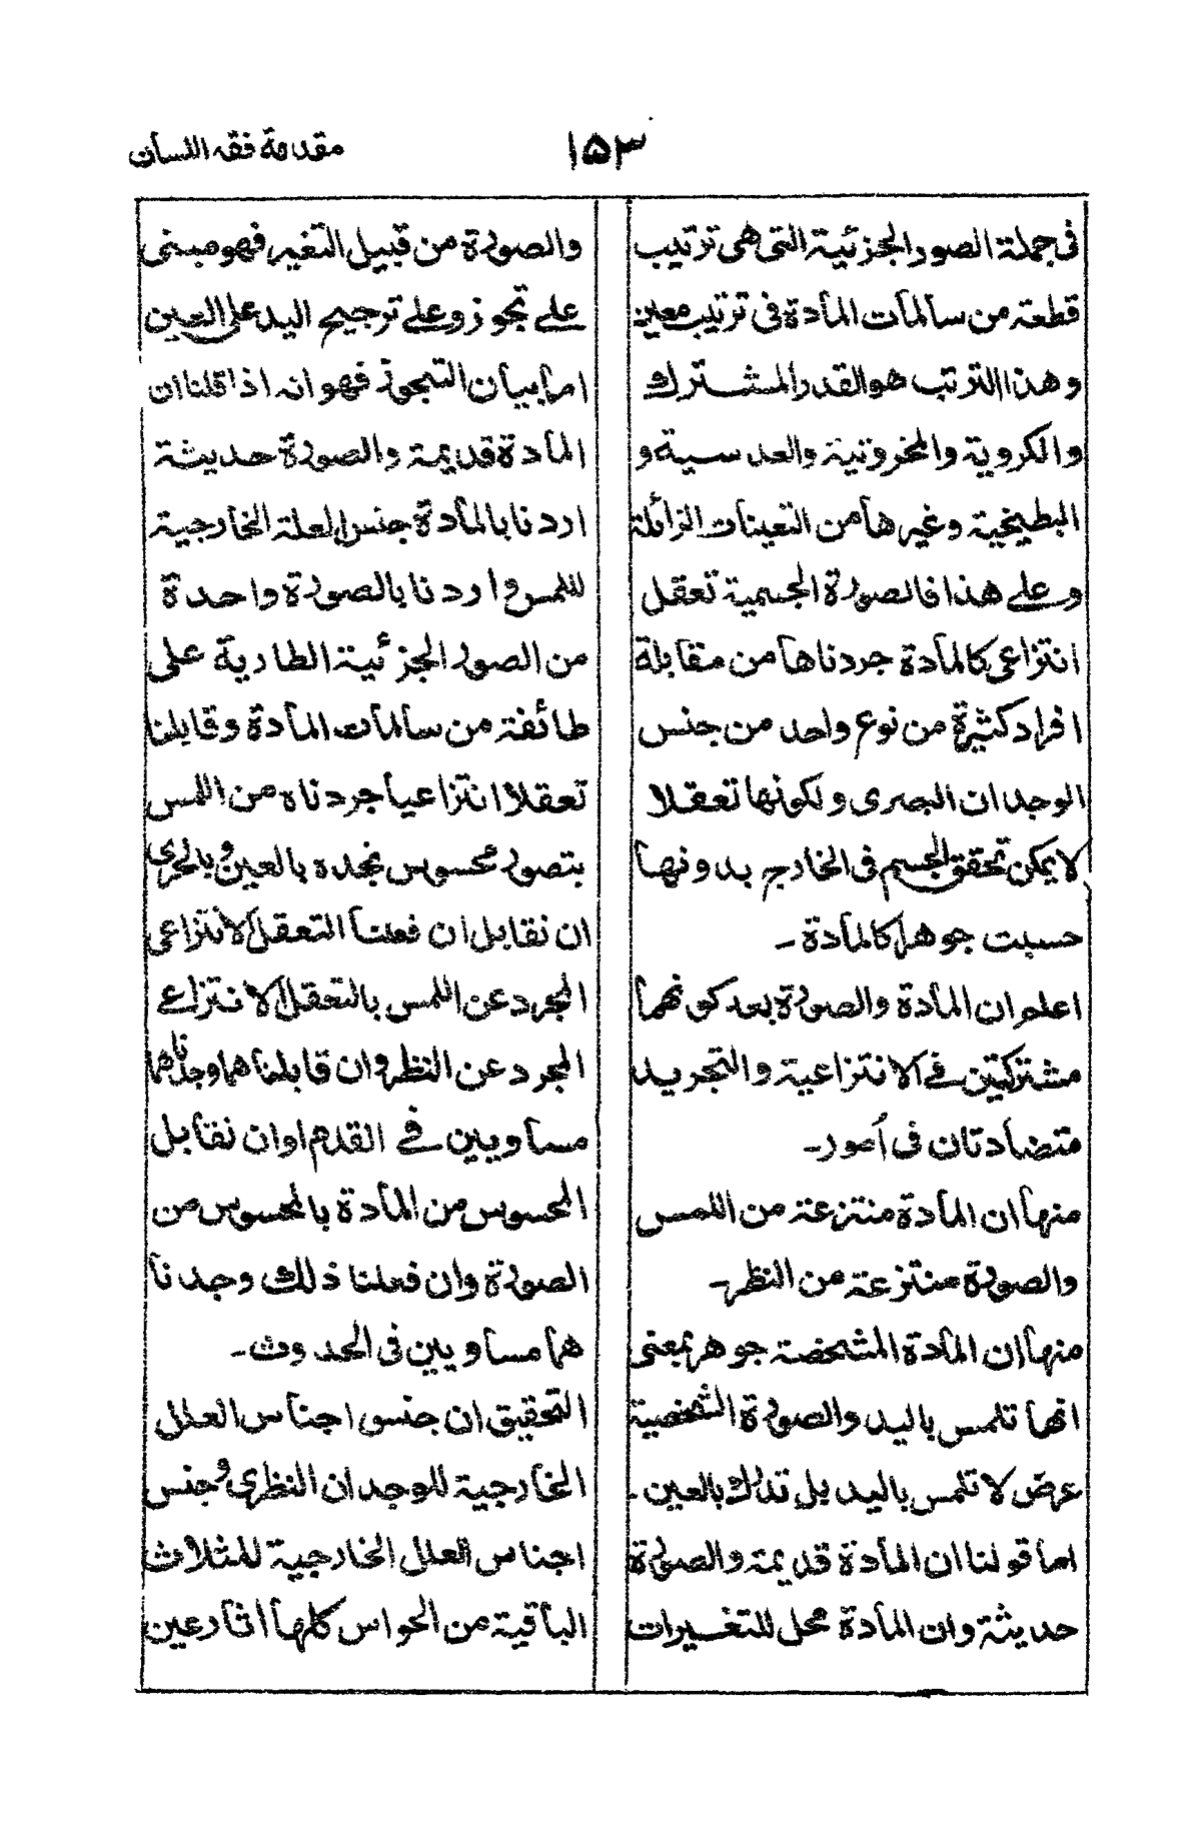 مقدمة فقه اللسان
١٥٣
فی جملة الصور الجزئیة التی هی ترتیب
قطعة من سالمات المادة فی ترتیب معین
وهذا الترتب هو القدر المشترك
والکرویة والمخروتیة والعدسیة و
البطیخیة وغیرها من التعینات الزائلة
وعلی هذا فالصورة الجسمیة تعقل
انتزاعی کالمادة جردناها من مقابلة
افراد کثیرة من نوع واحد من جنس
الوجدان البصری ولکونها تعقلا
لایمکن تحقق الجسم فی الخارج بدونها
حسبت جوهرا کالمادة ـ
اعلم ان المادة والصورة بعد کونهما
مشترکتین فی الانتزاعیة والتجرید
متضادتان فی أمور ـ
منها ان المادة منتزعة من اللمس
والصورة منتزعة من النظر ـ
منها ان المادة المشخصة جوهر بمعنی
انها تلمس بالید والصورة الشخصیة
عرض لا تلمس بالید بل تدرك بالعین ـ
اما قولنا ان المادة قدیمة والصورة
حدیثة وان المادة محل للتغیرات
والصورة من قبیل التغیر فهو مبنی
علی تجوز وعلی ترجیح الید علی العین
اما بیان التجوز فهو انه اذا قلنا ان
المادة قدیمة والصورة حدیثة
اردنا بالمادة جنس العلة الخارجیة
للمس واردنا بالصورة واحدة
من الصور الجزئیة الطاریة علی
طائفة من سالمات المادة وقابلنا
تعقلا انتزاعیا جردناه من اللمس
بتصور محسوس نجده بالعین وبالحری
ان نقابل ان فعلنا التعقل الانتزاعی
المجرد عن اللمس بالتعقل الانتزاعی
المجرد عن النظر وان قابلناهما وجدناهما
مساویین فی القدم او ان نقابل
المحسوس من المادة بالمحسوس من
الصورة وان فعلنا ذلك وجدنا
هما مساویین فی الحدوث ـ
التحقیق ان جنس اجناس العلل
الخارجیة للوجدان النظری وجنس
اجناس العلل الخارجیة للثلاث
الباقیة من الحواس کلها اثار عین